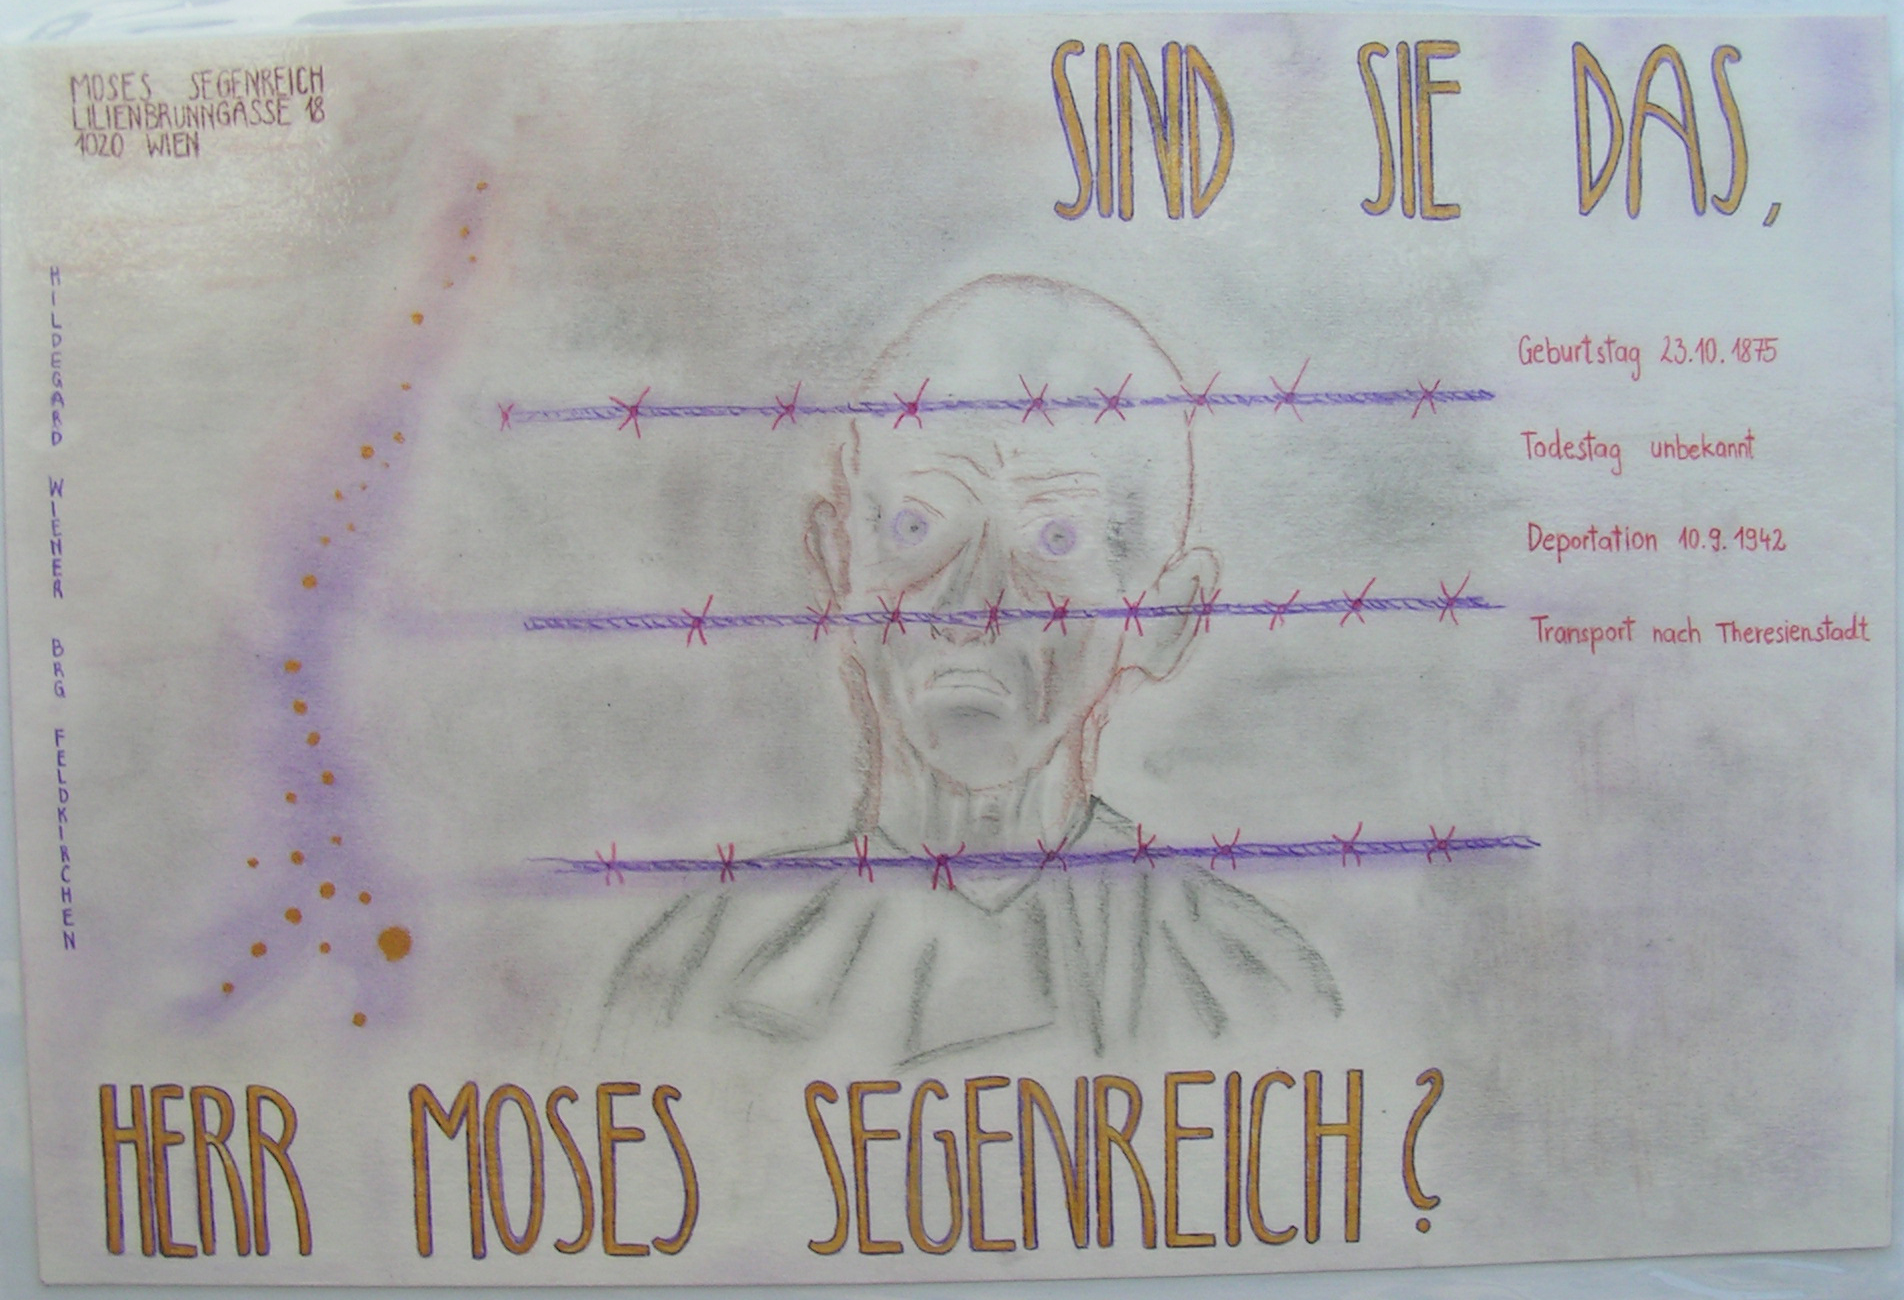 SIND SIE DAS,
MOSES SEGENREICH
LILIENBRUNNGASSE 18
1020 WIEN
HILDEGARD WIENER BRG FELDKIRCHEN
Geburtstag 23.10.1875
Todestag unbekannt
Deportation 10.9.1942
Transport nach Theresienstadt
HERR MOSES SEGENREICH?